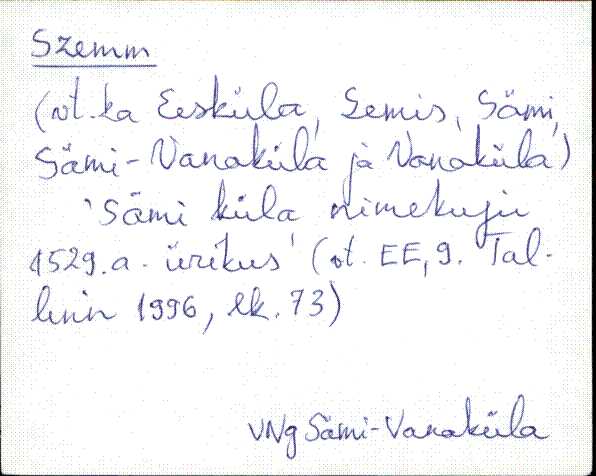 Szemm
(vt. ka Eesküla, Semis, Sämi,
Sämi-Vanaküla ja Vanaküla)
'Sämi küla nimekuju
1529. a. ürikus' (vt. EE, 9. Tal-
linn 1996, lk. 73)
VNg Sämi-Vanaküla